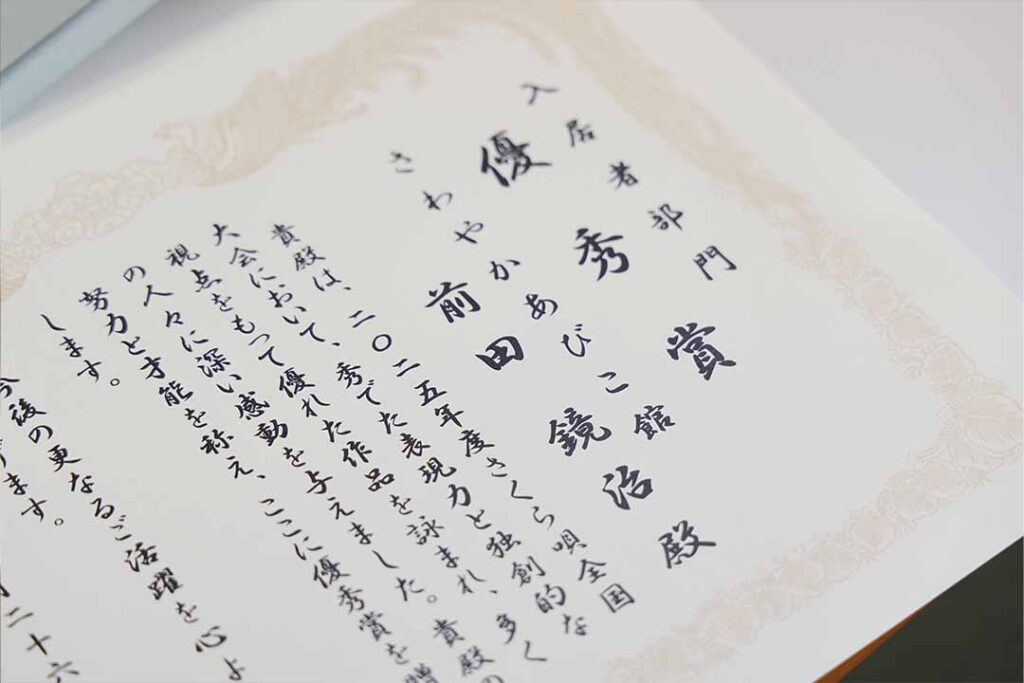 入居者部門
優秀賞
さわやかあびこ館
前田鏡治殿
貴殿は、二〇二五年度さくら唄全国
大会において、秀でた表現力と独創的な
視点をもって優れた作品を詠まれ、多く
の人々に深い感動を与えました。貴殿の
努力と才能を称え、ここに優秀賞を贈
します。
今後の更なるご活躍を心よ
ます。
月二十六